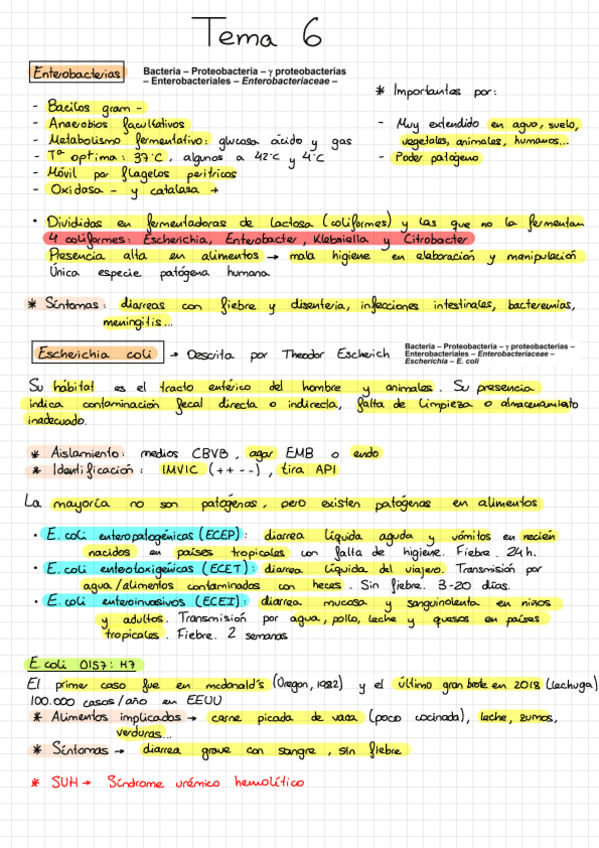 Tema 6
Enterobacterias
Bacteria – Proteobacteria – γ proteobacterias
– Enterobacteriales – Enterobacteriaceae –
* Importantes por:
- Bacilos gram -
- Anaerobios facultativos
- Metabolismo fermentativo: glucosa ácido y gas
- Tª optima: 37°C, algunos a 42°C y 4°C
- Móvil por flagelos peritricos
- Oxidasa - y catalasa +
- Muy extendido en agua, suelo,
vegetales, animales, humanos...
- Poder patógeno
• Divididas en fermentadoras de lactosa (coliformes) y las que no la fermentan
4 coliformes: Escherichia, Enterobacter, Klebsiella y Citrobacter
Presencia alta en alimentos → mala higiene en elaboración y manipulación
Única especie patógena humana
* Síntomas: diarreas con fiebre y disenteria, infecciones intestinales, bacteremias,
meningitis...
Escherichia coli → Descrita por Theodor Escherich
Bacteria – Proteobacteria – γ proteobacterias –
Enterobacteriales – Enterobacteriaceae –
Escherichia – E. coli
Su hábitat es el tracto entérico del hombre y animales. Su presencia
indica contaminación fecal directa o indirecta, falta de limpieza o almacenamiento
inadecuado.
* Aislamiento: medios CBVB, agar EMB o endo
* Identificación: IMVIC (++--), tira API
La mayoría no son patógenas, pero existen patógenas en alimentos
• E. coli enteropalogénicas (ECEP): diarrea líquida aguda y vómitos en recién
nacidos en países tropicales con falta de higiene. Fiebre. 24h.
• E. coli enteotoxigénicas (ECET): diarrea líquida del viajero. Transmisión por
agua/alimentos contaminados con heces. Sin fiebre. 3-20 días.
• E. coli enteroinvasivos (ECEI): diarrea mucosa y sanguinolenta en niños
y adultos. Transmisión por agua, pollo, leche y quesos en países
tropicales. Fiebre. 2 semanas
E. coli O157: H7
El primer caso fue en mcdonald's (Oregon, 1982) y el último gran brote en 2018 (Lechuga)
100.000 casos/año en EEUU
* Alimentos implicados → carne picada de vaca (poco cocinada), leche, zumos,
verduras...
* Síntomas → diarrea grave con sangre, sin fiebre
* SUH → Síndrome urémico hemolítico